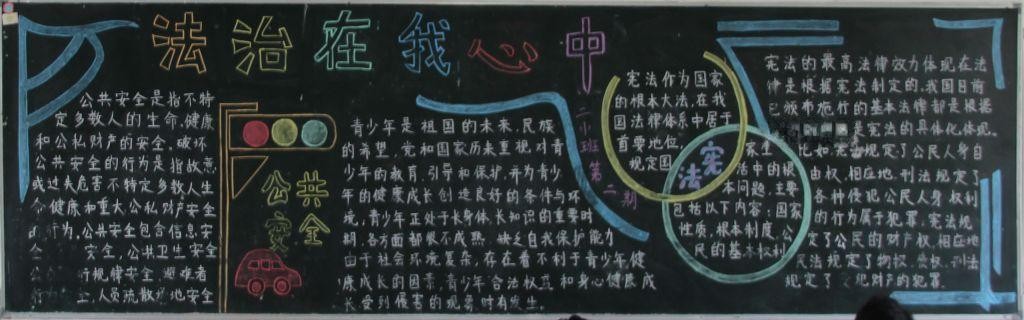 法治在我心中
公共安全是指不特
定多数人的生命、健康
和公私财产的安全。破坏
公共安全的行为是指故意
或过失危害不特定多数人生
命健康和重大公私财产安全
的行为,公共安全包含信息安
安全,公共卫生安全
行规律安全,避难者
人员流散地安全
公共
安全
青少年是祖国的未来,民族
的希望,党和国家历来重视对青
少年的教育,引导和保护,并为青少
年的健康成长创造良好的条件与环
境,青少年正处于长身体、长知识的重要时
期,各方面都很不成熟,缺乏自我保护能力
由于社会环境复杂,存在着不利于青少年健
康成长的因素,青少年合法权益和身心健康成
长受到侵害的现象时有发生。
二小班第二期
宪法作为国家
的根本大法,在我
国法律体系中居于
首要地位,
规定国
宪法
家生
活中的主要
本问题,根
包括以下内容:国家
性质,根本制度,公
民的基本权利
宪法的最高法律效力体现在法
律是根据宪法制定的。我国目前
已颁布施行的基本法律都是根据
是宪法的具体化体现。
比如宪法规定了公民人身自
由权,相应地,刑法规定了
各种侵犯公民人身权利
的行为属于犯罪。宪法规
定了公民的财产权,相应地
民法规定了物权、债权,刑法
规定了侵犯财产的犯罪.